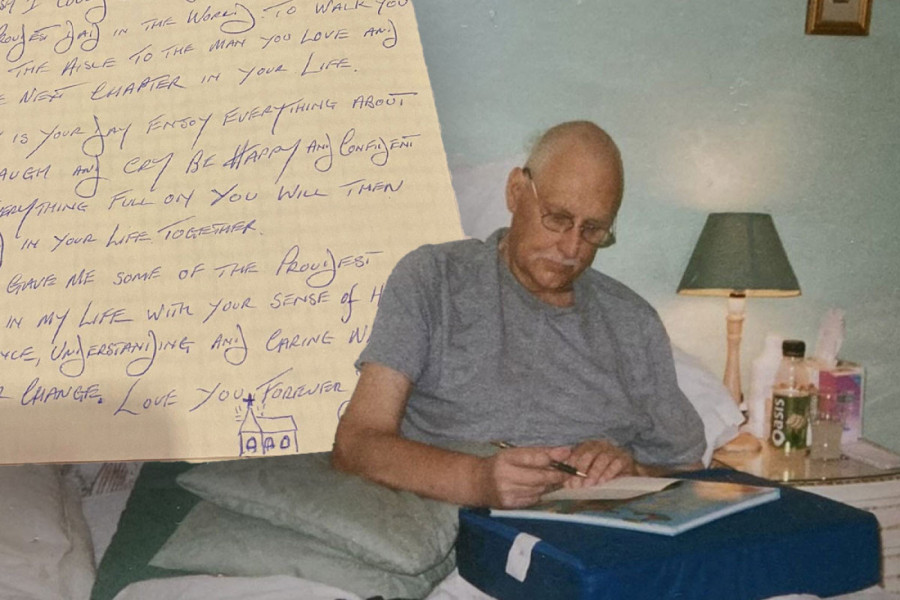 I COULD
PROUDEST DAD IN THE WORLD. TO WALK YOU
THE AISLE TO THE MAN YOU LOVE AND
NEXT CHAPTER IN YOUR LIFE.
IS YOUR DAY ENJOY EVERYTHING ABOUT
AUGH AND CRY BE HAPPY AND CONFIDENT
ERYTHING FULL ON YOU WILL THEN
IN YOUR LIFE TOGETHER.
GAVE ME SOME OF THE PROUDEST
IN MY LIFE WITH YOUR SENSE OF H
NCE, UNDERSTANDING AND CARING W
CHANGE. LOVE YOU FOREVER
Oasis